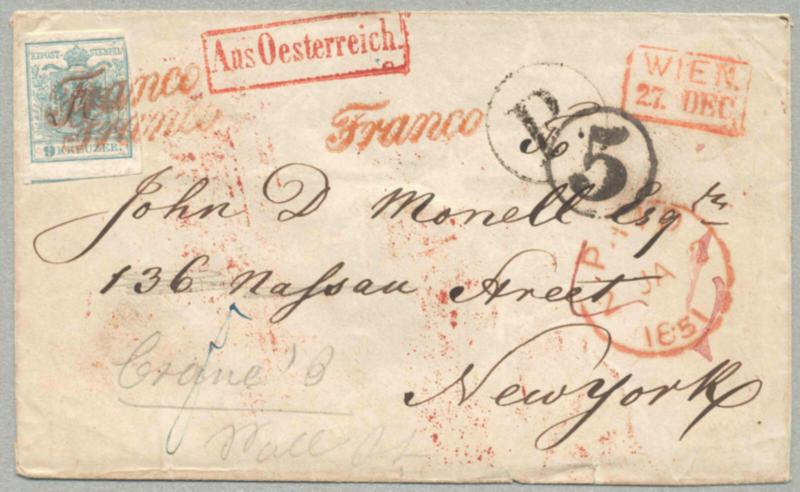 KK POST-STEMPEL
9 KREUZER.
Franco
Franco
Aus Oesterreich.
Franco
P.
5
WIEN.
27. DEC.
John D Monell Esqre
136 Nassau Street
New York
JA
1851
Crane's
Wall St